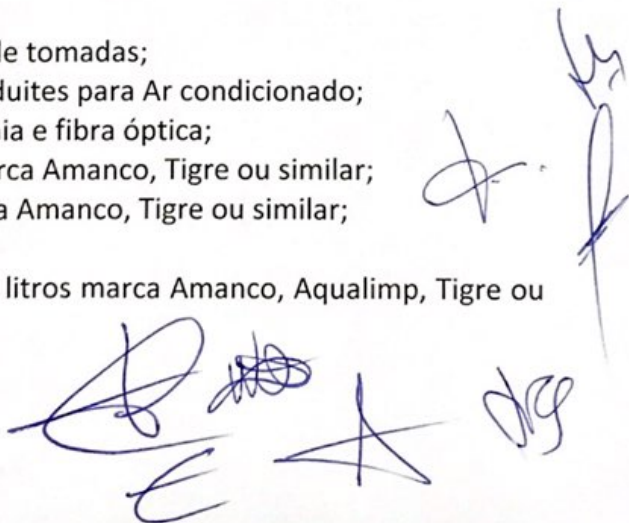 de tomadas;
duites para Ar condicionado;
ia e fibra óptica;
rca Amanco, Tigre ou similar;
a Amanco, Tigre ou similar;
litros marca Amanco, Aqualimp, Tigre ou